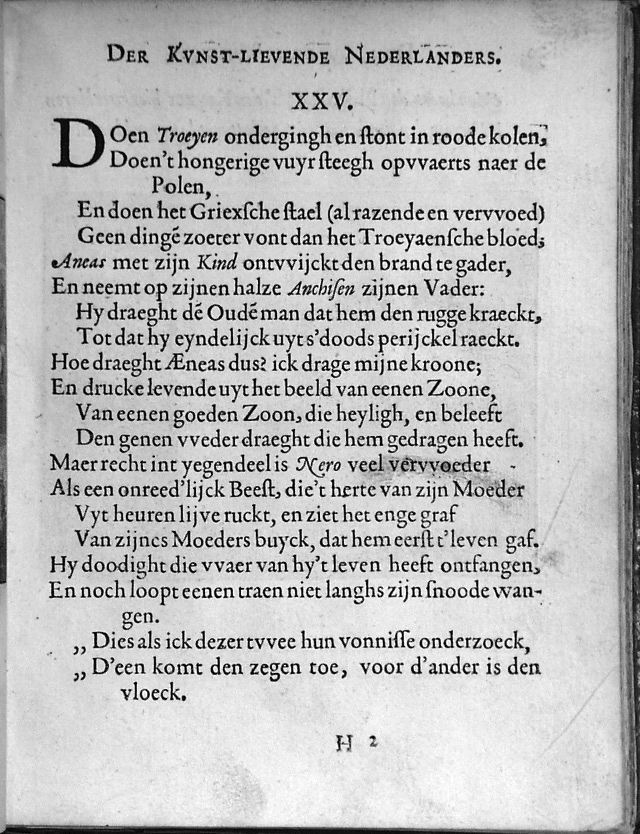 DER KVNST-LIEVENDE NEDERLANDERS.
XXV.
DOen Troeyen ondergingh en ſtont in roode kolen,
Doen't hongerige vuyr ſteegh opvvaerts naer de
Polen,
En doen het Griexſche ſtael (al razende en vervvoed)
Geen dingē zoeter vont dan het Troeyaenſche bloed;
Æneas met zijn Kind ontvvijckt den brand te gader,
En neemt op zijnen halze Anchiſen zijnen Vader:
Hy draeght dē Oudē man dat hem den rugge kraeckt,
Tot dat hy eyndelijck uyt s'doods perijckel raeckt.
Hoe draeght Æneas dus? ick drage mijne kroone;
En drucke levende uyt het beeld van eenen Zoone,
Van eenen goeden Zoon, die heyligh, en beleeft
Den genen vveder draeght die hem gedragen heeft.
Maer recht int yegendeel is Nero veel vervvoeder
Als een onreed'lijck Beeſt, die't herte van zijn Moeder
Vyt heuren lijve ruckt, en ziet het enge graf
Van zijnes Moeders buyck, dat hem eerſt t'leven gaf.
Hy doodight die vvaer van hy't leven heeft ontfangen,
En noch loopt eenen traen niet langhs zijn ſnoode wan-
gen.
,, Dies als ick dezer tvvee hun vonniſſe onderzoeck,
,, D'een komt den zegen toe, voor d'ander is den
vloeck.
H 2